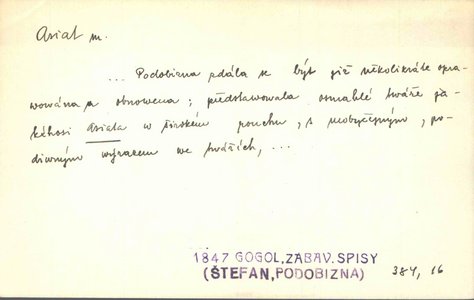 Asiat m.
... Podobizna zdála se býti již několikráte opra-
wowána a obnowena; představowala osmahlé twáře ja-
kéhosi Asiata w širokém rouchu, s neobyčejným, po-
diwným wýrazem we twářích, ...
1847 GOGOL, ZÁBAV. SPISY
(ŠTEFAN, PODOBIZNA) 384, 16